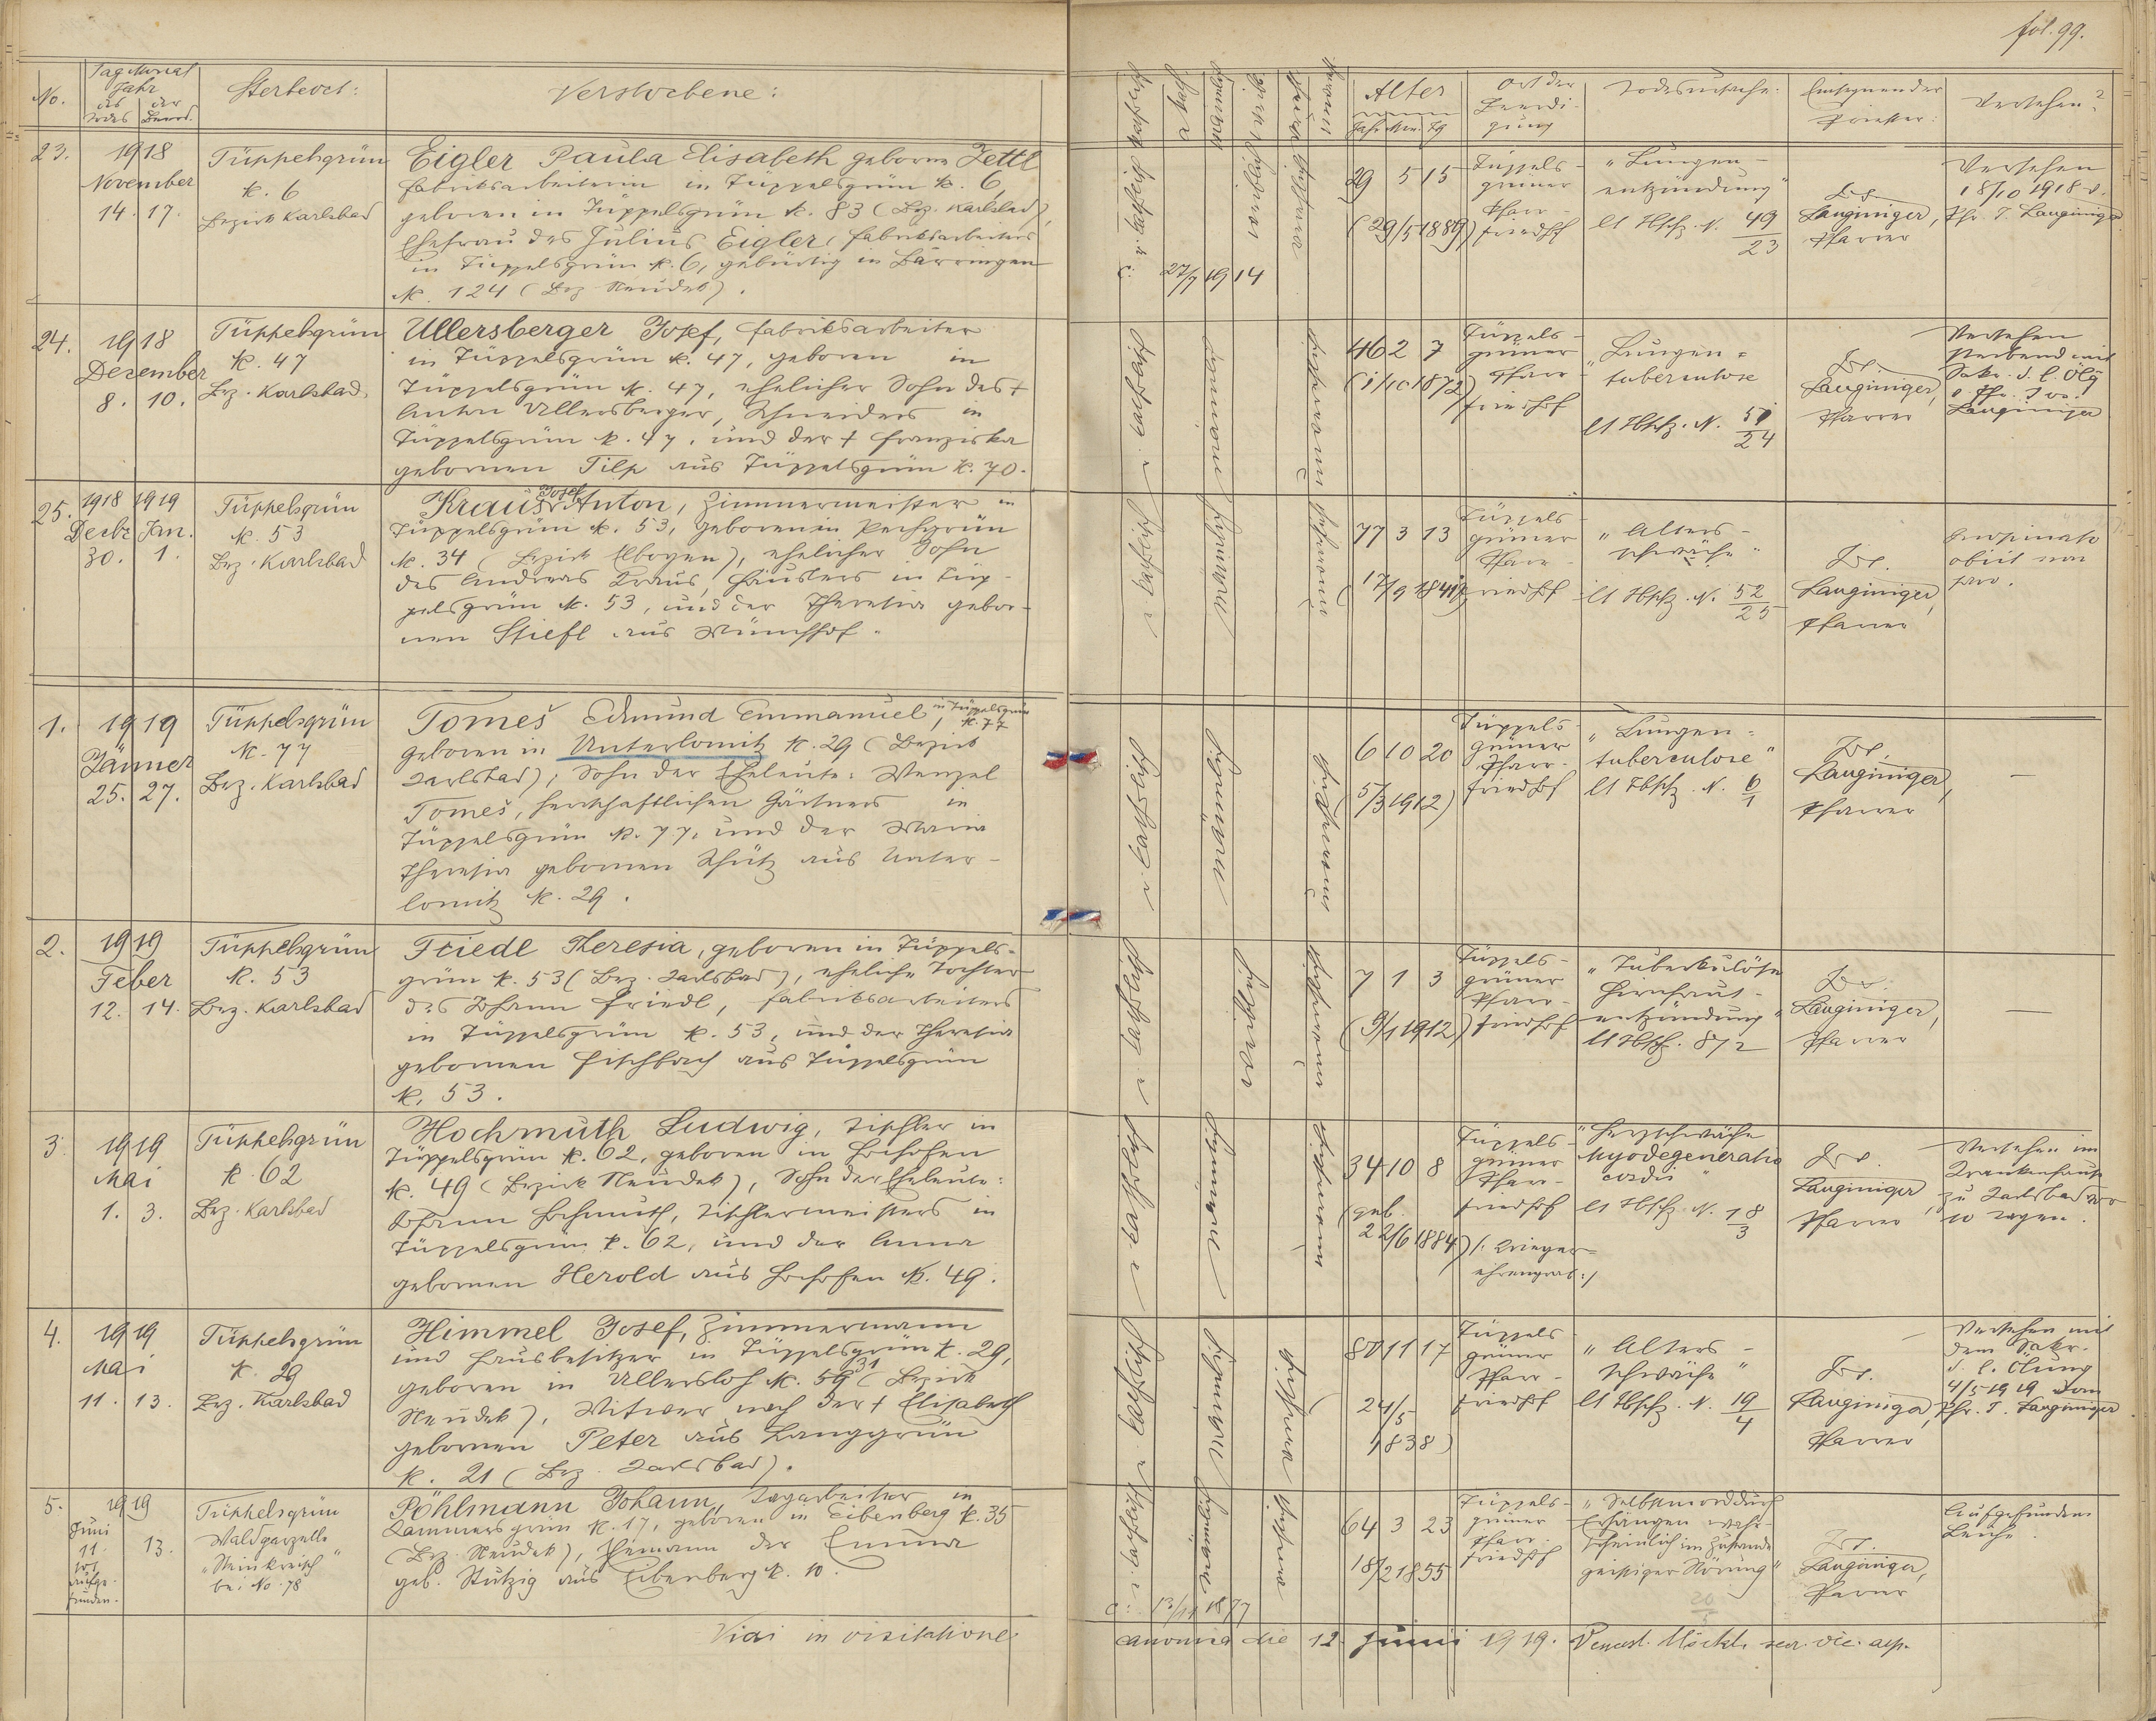 fol. 99.
No.
Tag Monat
Jahr
des Todes
der Beerd.
Sterbeort:
Verstorbene:
katholisch
Alter
Jahr Mon. Tg
Ort der
Beerdi-
gung
Todesursache:
Einsegnender
Priester:
Versehen?
23.
1918
November
14. 17.
Tüppelsgrün
N. 6
Bezirk Karlsbad
Eigler Paula Elisabeth geborne Zettl
Fabriksarbeiterin in Tüppelsgrün N. 6,
geboren in Tüppelsgrün N. 83 (Bez. Karlsbad),
Ehefrau des Julius Eigler, Fabriksarbeiters
in Tüppelsgrün N. 6, gebürtig in Bärringen
N. 124 (Bez. Neudek).
katholisch
27/7 1914
29 5 15
(29/5 1889)
Tüppels-
grüner
Pfarr-
friedhof
"Lungen-
entzündung"
lt Tbschz. N. 49/23
Jos.
Lauginiger,
Pfarrer
Versehen
18/10 1918 v.
Pfr. J. Lauginiger
24.
1918
Dezember
8. 10.
Tüppelsgrün
N. 47
Bez. Karlsbad.
Ullersberger Josef, Fabriksarbeiter
in Tüppelsgrün N. 47, geboren in
Tüppelsgrün N. 47, ehelicher Sohn des †
Anton Ullersberger, Schneiders in
Tüppelsgrün N. 47, und der † Franziska
gebornen Tilp aus Tüppelsgrün N. 70.
katholisch
46 2 7
(1/10 1872)
Tüppels-
grüner
Pfarr-
friedhof
"Lungen-
tuberculose
lt Tbschz. N. 51/24
Jos.
Lauginiger,
Pfarrer
Versehen
Sakr. d. l. Ölg
Lauginiger
25.
1918 1919
Dezbr Jan.
30. 1.
Tüppelsgrün
N. 53
Bez. Karlsbad
Kraus Josef Anton, Zimmermeister in
Tüppelsgrün N. 53, geboren in Pechgrün
N. 34 (Bezirk Elbogen), ehelicher Sohn
des Andreas Kraus, Häuslers in Tüp-
pelsgrün N. 53, und der Theresia gebor-
nen Stiefl aus Münchhof.
katholisch
77 3 13
(17/9 1841)
Tüppels-
grüner
Pfarr-
friedhof
"Alters-
schwäche"
lt Tbschz. N. 52/25
Jos.
Lauginiger,
Pfarrer
obiit non
pro.
1.
1919
Jänner
25. 27.
Tüppelsgrün
N. 77
Bez. Karlsbad
Tomeš Edmund Emmanuel, in Tüppelsgrün N. 77
geboren in Unterlomitz N. 29 (Bezirk
Karlsbad), Sohn der Eheleute: Wenzel
Tomeš, herrschaftlichen Gärtners in
Tüppelsgrün N. 77, und der Maria
Theresia gebornen Schütz aus Unter-
lomitz N. 29.
katholisch
6 10 20
5/3 1912)
Tüppels-
grüner
Pfarr-
friedhof
"Lungen-
tuberculose"
lt Tbschz. N. 6/1
Jos.
Lauginiger,
Pfarrer
—
2.
1919
Feber
12. 14.
Tüppelsgrün
N. 53
Bez. Karlsbad
Friedl Theresia, geboren in Tüppels-
grün N. 53 (Bez. Karlsbad), eheliche Tochter
des Johann Friedl, Fabriksarbeiters
in Tüppelsgrün N. 53, und der Theresia
gebornen Fischbach aus Tüppelsgrün
N. 53.
katholisch
7 1 3
(9/1 1912)
Tüppels-
grüner
Pfarr-
friedhof
"Tuberkulöse
Hirnhaut-
entzündung"
lt Tbsch. 8/2
Jos.
Lauginiger,
Pfarrer
—
3.
1919
Mai
1. 3.
Tüppelsgrün
N. 62
Bez. Karlsbad
Hochmuth Ludwig, Tischler in
Tüppelsgrün N. 62, geboren in Hochofen
N. 49 (Bezirk Neudek), Sohn der Eheleute:
Johann Hochmuth, Tischlermeisters in
Tüppelsgrün N. 62, und der Anna
gebornen Herold aus Hochofen N. 49.
katholisch
34 10 8
(geb.
22/6 1884)
Tüppels-
grüner
Pfarr-
friedhof
/: Krieger-
ehrengrab :/
"Herzschwäche
Myodegeneratio
cordis"
lt Tbschz. N. 18/3
Jos.
Lauginiger,
Pfarrer
Versehen im
Krankenhause
zu Karlsbad vor
10 Tagen.
4.
1919
Mai
11. 13.
Tüppelsgrün
N. 29
Bez. Karlsbad
Himmel Josef, Zimmermann
und Hausbesitzer in Tüppelsgrün N. 29,
geboren in Ullersloh N. 59 31 (Bezirk
Neudek), Witwer nach der † Elisabeth
gebornen Peter aus Langgrün
N. 21 (Bez. Karlsbad).
katholisch
80 11 17
(24/5
1838)
Tüppels-
grüner
Pfarr-
friedhof
"Alters-
schwäche"
lt Tbschz. N. 19/4
Jos.
Lauginiger,
Pfarrer
Versehen mit
dem Sakr.
d. l. Ölung
4/5 1919 vom
Pfr. J. Lauginiger
5.
1919
Juni
11.
tot
aufge-
funden.
13.
Tüppelsgrün
Waldparzelle
"Steinkreisch"
bei No. 78
Pöhlmann Johann, Tagarbeiter in
Sammersgrün N. 17, geboren in Eibenberg N. 35
(Bez. Neudek), Ehemann der Emma
geb. Stutzig aus Eibenberg N. 10.
katholisch
13/11 1877
64 3 23
18/2 1855
Tüppels-
grüner
Pfarr-
friedhof
"Selbstmord durch
Erhängen wahr-
scheinlich im Zustande
geistiger Störung"
20/5
Jos.
Lauginiger,
Pfarrer
Aufgefundene
Leiche
Vidi in visitatione
canonica die 12. Junii 1919. Vencesl. Möckl,